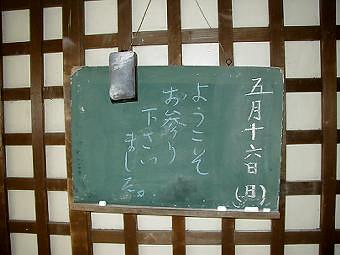 五月十六日(日)
ようこそ
お参り
下さい
ました